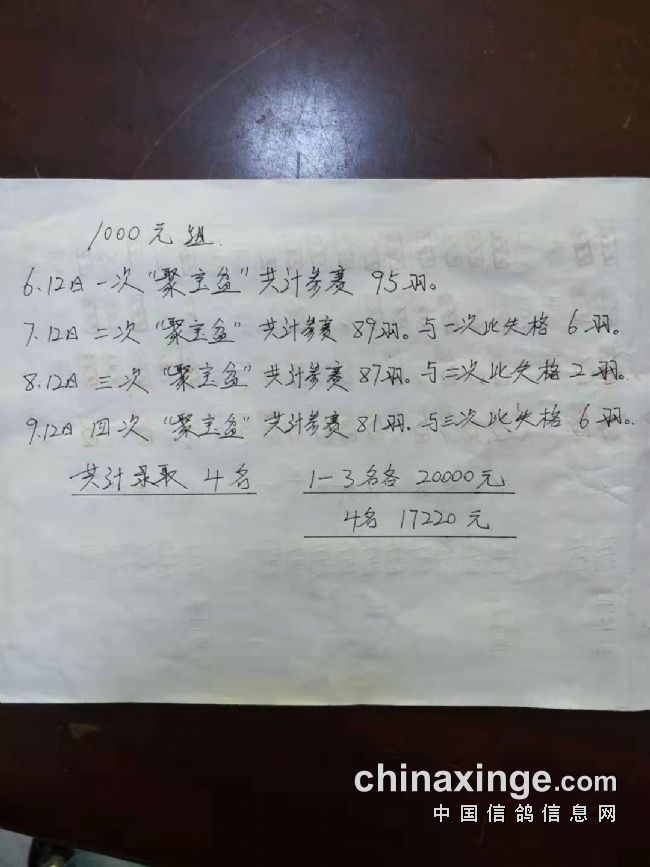 1000元组.
6.12日一次“聚宝盆”共计参赛 95羽。
7.12日二次“聚宝盆”共计参赛 89羽。与一次比失格 6羽。
8.12日三次“聚宝盆”共计参赛 87羽。与二次比失格 2羽。
9.12日四次“聚宝盆”共计参赛 81羽.与三次比失格 6羽。
共计录取 4名 1-3名各 20000元
4名 17220元
chinaxinge.com
中国信鸽信息网